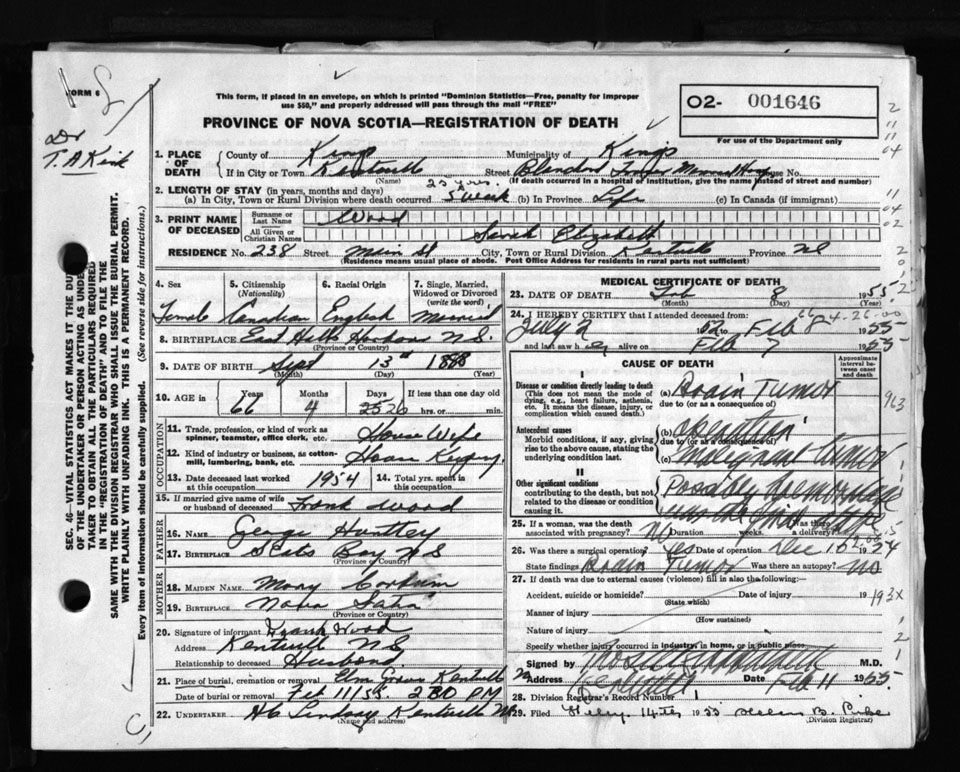 FORM 6
Dr
T. A Kirk
This form, if placed in an envelope, on which is printed "Dominion Statistics—Free, penalty for improper
use $50," and properly addressed will pass through the mail "FREE"
PROVINCE OF NOVA SCOTIA—REGISTRATION OF DEATH
O2- 001646
For use of the Department only
1. PLACE OF DEATH
County of Kings Municipality of Kings
If in City or Town Kentville Street House No.
(Name) (If death occurred in a hospital or institution, give the name instead of street and number)
2. LENGTH OF STAY (in years, months and days) 25 yrs.
(a) In City, Town or Rural Division where death occurred 5 week (b) In Province Life (c) In Canada (if immigrant)
3. PRINT NAME OF DECEASED
Surname or Last Name Wood
All Given or Christian Names Sarah Elizabeth
RESIDENCE No. 238 Street Main St City, Town or Rural Division Kentville Province NS
(Residence means usual place of abode. Post Office Address for residents in rural parts not sufficient)
4. Sex 5. Citizenship (Nationality) 6. Racial Origin 7. Single, Married, Widowed or Divorced (write the word)
Female Canadian English Married
8. BIRTHPLACE East Halls Harbour N.S.
(Province or Country)
9. DATE OF BIRTH Sept 13th 1888
(Month) (Day)
10. AGE in Years Months Days If less than one day old
66 4 25 26 hrs. or min.
OCCUPATION
11. Trade, profession, or kind of work as spinner, teamster, office clerk, etc. House Wife
12. Kind of industry or business, as cotton-mill, lumbering, bank, etc. House Keeping
13. Date deceased last worked at this occupation 1954 14. Total yrs. spent in this occupation
15. If married give name of wife or husband of deceased Frank Wood
FATHER
16. NAME George Huntley
17. BIRTHPLACE Scots Bay N S
(Province or Country)
MOTHER
18. MAIDEN NAME Mary
19. BIRTHPLACE Nova
(Province or Country)
20. Signature of informant Frank Wood
Address Kentville N.S.
Relationship to deceased Husband
21. Place of burial, cremation or removal Elm Grove Kentville
Date of burial or removal Feb 11/55 2 30 PM
22. UNDERTAKER H C Lindsay Kentville NS
(Name and address)
MEDICAL CERTIFICATE OF DEATH
23. DATE OF DEATH Feb 8 1955
(Month) (Day)
24. I HEREBY CERTIFY that I attended deceased from:
July 2 1952 Feb 8 1955
and last saw her alive on Feb 7 1955
CAUSE OF DEATH
Approximate interval between onset and death
I
Disease or condition directly leading to death
(This does not mean the mode of dying, e.g., heart failure, asthenia, etc. It means the disease, injury, or complication which caused death.)
(a) Brain Tumor
due to (or as a consequence of)
Antecedent causes
Morbid conditions, if any, giving rise to the above cause, stating the underlying condition last.
(b) operation
due to (or as a consequence of)
(c) Malignant tumor
II
Other significant conditions
contributing to the death, but not related to the disease or condition causing it.
Possibly
25. If a woman, was the death associated with pregnancy? No Duration weeks. Was there a delivery?
26. Was there a surgical operation? Yes Date of operation Dec 1954
State findings Brain Tumor Was there an autopsy? No
27. If death was due to external causes (violence) fill in also the following:—
Accident, suicide or homicide? Date of injury 19
(State which)
193X
Manner of injury
(How sustained)
Nature of injury
Specify whether injury occurred in industry, in home, or in public place.
Signed by M.D.
Address Date Feb 11 1955
28. Division Registrar's Record Number
29. Filed Feby. 14th 1955
(Division Registrar)
SEC. 46—VITAL STATISTICS ACT MAKES IT THE DUTY OF THE UNDERTAKER OR PERSON ACTING AS UNDERTAKER TO OBTAIN ALL THE PARTICULARS REQUIRED IN THE "REGISTRATION OF DEATH" AND TO FILE THE SAME WITH THE DIVISION REGISTRAR WHO SHALL ISSUE THE BURIAL PERMIT.
WRITE PLAINLY WITH UNFADING INK. THIS IS A PERMANENT RECORD.
Every item of information should be carefully supplied. (See reverse side for instructions.)